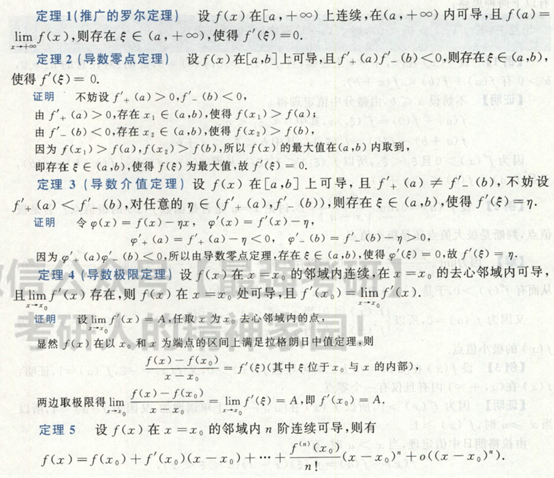 定理 1(推广的罗尔定理) 设 f(x)在[a,+∞)上连续,在(a,+∞)内可导,且 f(a)=
lim_{x→+∞} f(x),则存在 ξ∈(a,+∞),使得 f′(ξ)=0.
定理 2 (导数零点定理) 设 f(x)在[a,b]上可导,且 f′₊(a)f′₋(b)<0,则存在 ξ∈(a,b),
使得 f′(ξ) = 0.
证明 不妨设 f′₊(a)>0,f′₋(b)<0,
由 f′₊(a)>0,存在 x₁∈(a,b),使得 f(x₁)>f(a);
由 f′₋(b)<0,存在 x₂∈(a,b),使得 f(x₂)>f(b),
因为 f(x₁)>f(a),f(x₂)>f(b),所以 f(x)的最大值在(a,b)内取到,
即存在 ξ∈(a,b),使得 f(ξ)为最大值,故 f′(ξ)=0.
定理 3 (导数介值定理) 设 f(x) 在[a,b] 上可导, 且 f′₊(a) ≠ f′₋(b), 不妨设
f′₊(a)<f′₋(b),对任意的 η∈(f′₊(a),f′₋(b)),则存在 ξ∈(a,b),使得 f′(ξ)=η.
证明 令 φ(x) = f(x)−ηx, φ′(x) = f′(x)−η,
φ′₊(a) = f′₊(a)−η<0, φ′₋(b) = f′₋(b)−η>0,
因为 φ′₊(a)φ′₋(b)<0,所以由导数零点定理,存在 ξ∈(a,b),使得 φ′(ξ)=0,故 f′(ξ)=η.
定理 4 (导数极限定理) 设 f(x) 在 x = x₀ 的邻域内连续,在 x = x₀ 的去心邻域内可导,
且 lim_{x→x₀} f′(x) 存在, 则 f(x) 在 x = x₀ 处可导,且 f′(x₀) = lim_{x→x₀} f′(x).
证明 设 lim_{x→x₀} f′(x) = A,任取 x 为 x₀ 去心邻域内的点,
显然 f(x) 在以 x₀ 和 x 为端点的区间上满足拉格朗日中值定理,则
(f(x)−f(x₀))/(x−x₀) = f′(ξ)(其中 ξ 位于 x₀ 与 x 的内部),
两边取极限得 lim_{x→x₀} (f(x)−f(x₀))/(x−x₀) = lim_{x→x₀} f′(ξ) = A,即 f′(x₀) = A.
定理 5 设 f(x) 在 x = x₀ 的邻域内 n 阶连续可导,则有
f(x) = f(x₀) + f′(x₀)(x−x₀) + ⋯ + (f⁽ⁿ⁾(x₀)/n!)(x−x₀)ⁿ + o((x−x₀)ⁿ).